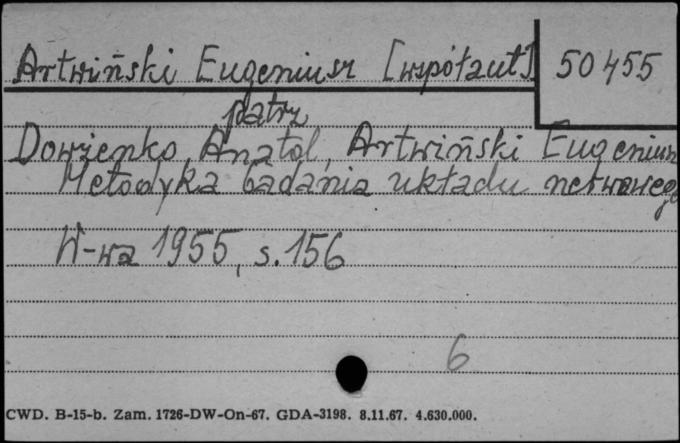 Artwiński Eugeniusz [współaut] 50455
patrz
Dowżenko, Anatol, Artwiński Eugeniusz
Metodyka badania układu nerwowego
W-wa 1955, s. 156
6
CWD. B-15-b. Zam. 1726-DW-On-67. GDA-3198. 8.11.67. 4.630.000.